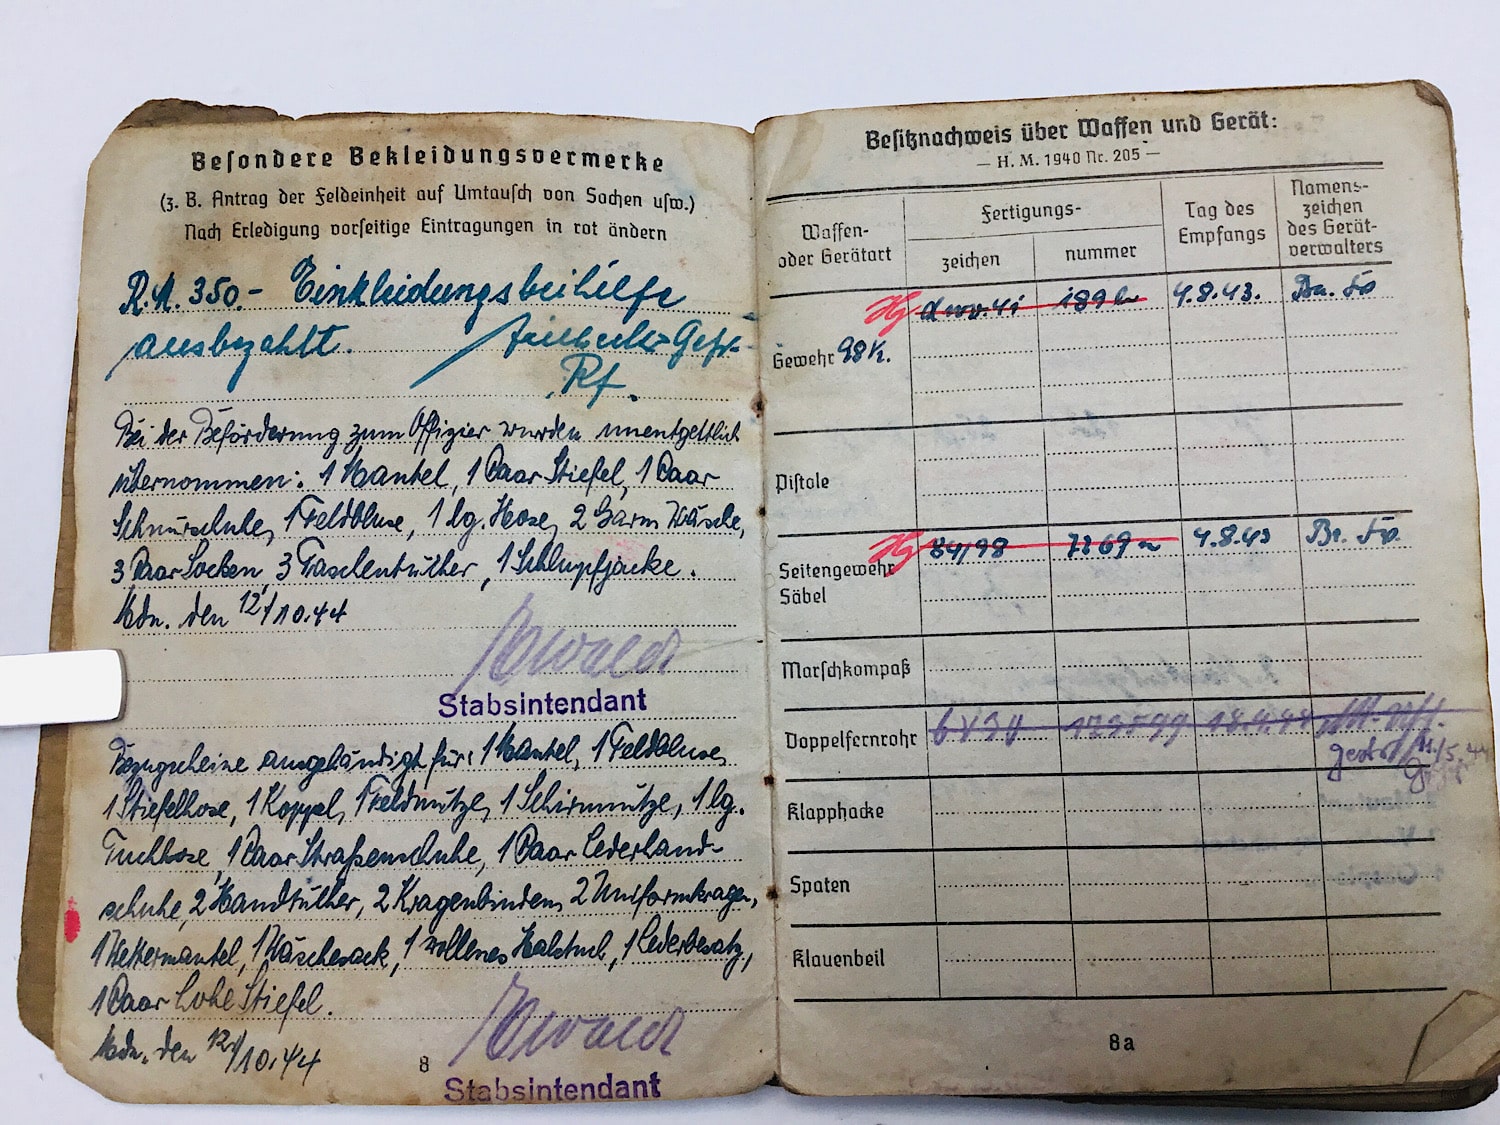 Besondere Bekleidungsvermerke
(z. B. Antrag der Feldeinheit auf Umtausch von Sachen usw.)
Nach Erledigung vorseitige Eintragungen in rot ändern
R.M. 350.- Einkleidungsbeihilfe
ausbezahlt.
Rf.
Bei der Beförderung zum Offizier wurden unentgeltlich
übernommen: 1 Mantel, 1 Paar Stiefel, 1 Paar
Schnürschuhe, 1 Feldbluse, 1 lg. Hose, 2 Garn. Wäsche,
3 Paar Socken, 3 Taschentücher, 1 Schlupfjacke.
Mdn. den 12./10.44
Stabsintendant
Bezugscheine ausgehändigt für: 1 Mantel, 1 Feldbluse,
1 Stiefelhose, 1 Koppel, 1 Feldmütze, 1 Schirmmütze, 1 lg.
Tuchhose, 1 Paar Straßenschuhe, 1 Paar Lederhand-
schuhe, 2 Handtücher, 2 Kragenbinden, 2 Uniformkragen,
1 Wettermantel, 1 Wäschesack, 1 wollenes Halstuch, 1 Lederbesatz,
1 Paar hohe Stiefel.
Mdn. den 12./10.44
8
Stabsintendant
Besitznachweis über Waffen und Gerät:
— H. M. 1940 Nr. 205 —
Waffen- oder Gerätart
Fertigungs-
zeichen
nummer
Tag des Empfangs
Namens- zeichen des Gerät- verwalters
Gewehr 98 k.
4.8.43.
Pistole
Seitengewehr Säbel
84/98
4.8.43
Marschkompaß
Doppelfernrohr
Klapphacke
Spaten
Klauenbeil
8a